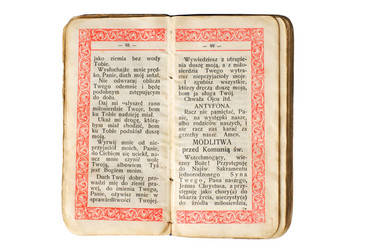 — 98 —
jako ziemia bez wody
Tobie.
Wysłuchajże mnie pręd-
ko, Panie, duch mój ustał.
Nie odwracaj oblicza
Twego odemnie i będę
podobnym zstępującym
do dołu.
Daj mi usłyszeć rano
miłosierdzie Twoje, bom
ku Tobie nadzieję miał.
Ukaż mi drogę, którą-
bym miał chodzić, bom
ku Tobie podniósł duszę
moją.
Wyrwij mnie od nie-
przyjaciół moich, Panie,
do Ciebiem się uciekł, na-
ucz mnie czynić wolę
Twoją, albowiem Tyś
jest Bogiem moim.
Duch Twój dobry pro-
wadzi mię do ziemi pra-
wej, do imienia Twego,
Panie, ożywisz mnie w
sprawiedliwości Twojej.
— 99 —
Wywiedziesz z utrapie-
nia duszę moją, a z miło-
sierdzia Twego wytra-
cisz nieprzyjacioły moje.
I zgubisz wszystkie,
którzy dręczą duszę moją,
bom ja sługa Twój.
Chwała Ojcu itd.
ANTYFONA.
Racz nie pamiętać, Pa-
nie, na występki nasze,
albo rodziców naszych, i
nie racz nas karać za
grzechy nasze. Amen.
MODLITWA
przed Komunią św.
Wszechmogący, wie-
czny Boże! Przystępuję
do Najśw. Sakramentu
jednorodzonego Syna
Twego, Pana naszego,
Jezusa Chrystusa, a przy-
stępuję jako chory(a) do
lekarza życia, nieczysty(a)
do źródła miłosierdzia,